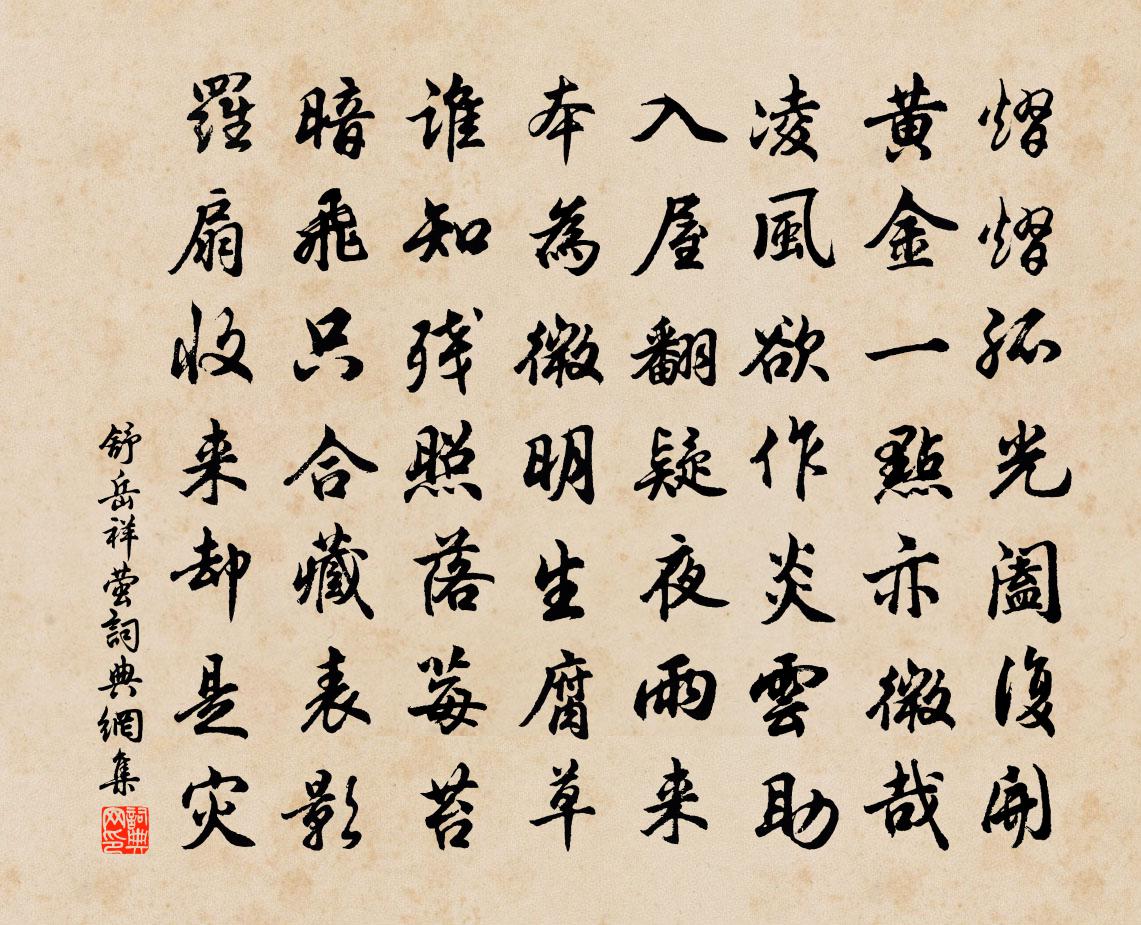 熠熠孤光闔復開
黄金一點亦微哉
凌風欲作炎雲助
入屋翻疑夜雨来
本為微明生腐草
谁知残照落莓苔
暗飛只合藏表影
羅扇收来却是灾
舒岳祥 萤 詞典網集
詞典网印